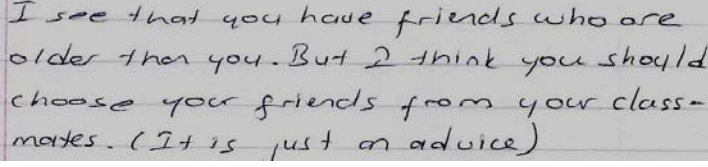 I see that you have friends who are
older than you. But I think you should
choose your friends from your class-
mates. (It is just an advice)